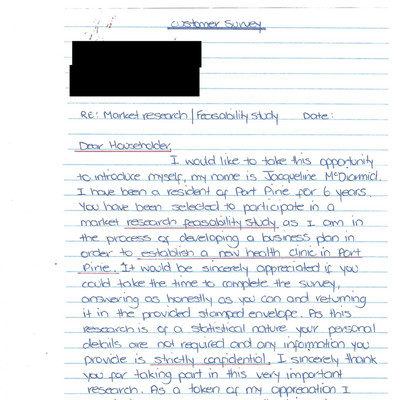 Customer Survey
RE: Market research/Feasability study Date:
Dear Householder,
I would like to take this opportunity
to introduce myself, my name is Jacqueline McDiarmid.
I have been a resident of Port Pirie for 6 years.
You have been selected to participate in a
market research feasability study as I am in
the process of developing a business plan in
order to establish a new health clinic in Port
Pirie. It would be sincerely appreciated if you
could take the time to complete the survey,
answering as honestly as you can and returning
it in the provided stamped envelope. As this
research is of a statistical nature your personal
details are not required and any information you
provide is strictly confidential. I sincerely thank
you for taking part in this very important
research. As a token of my appreciation I